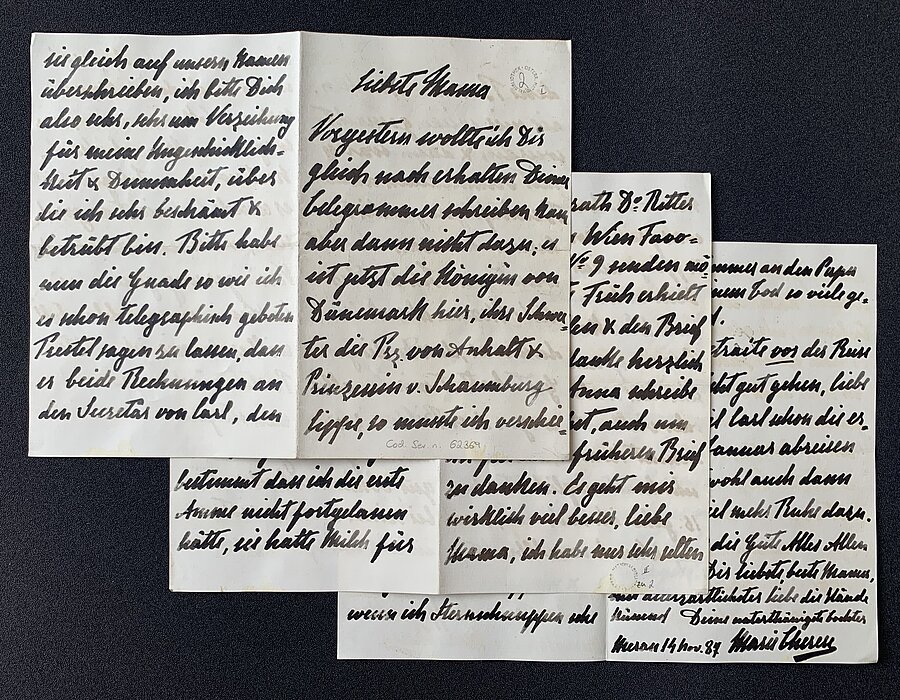 Liebste Mama
Vorgestern wollte ich Dir
gleich nach erhalten Deines
telegrammes schreiben kam
aber dann nicht dazu, es
ist jetzt die Königin von
Dänemark hier, ihre Schwe-
ter die Prz. von Anhalt &
Prinzessin v. Schaumburg
Lippe, so musste ich verschie-
Cod. Ser. n. 62369
sie gleich auf unsern Namen
überschrieben, ich bitte Dich
also sehr, sehr um Verzeihung
für meine Ungeschicklich-
keit & Dummheit, über
die ich sehr beschämt &
betrübt bin. Bitte habe
nun die Gnade so wie ich
es schon telegraphisch gebeten
Prestel sagen zu lassen, dass
er beide Rechnungen an
den Secretär von Carl, den
bestimmt dass ich die erste
Amme nicht fortgelassen
hätte, sie hatte Milch für
rath Dr. Ritter
Wien Favo-
No. 9 senden
Früh erhielt
& den Brief
danke herzlich
Anna schreibe
auch um
früheren Brief
zu danken. Es geht mir
wirklich viel besser, liebe
Mama, ich habe nur sehr selten
wenn ich Sternschnuppen sehe
an den Papa
Tod so viele ge-
vor der Reise
gut gehen, liebe
Carl schon die er-
abreisen
wohl auch dann
mehr Ruhe dazu.
die Güte Alles Allen
Dir liebste, beste Mama,
allerzärtlichster Liebe die Hände
küssend Deine unterthänigste Tochter
Meran 14 Nov. 87 Marie Therese